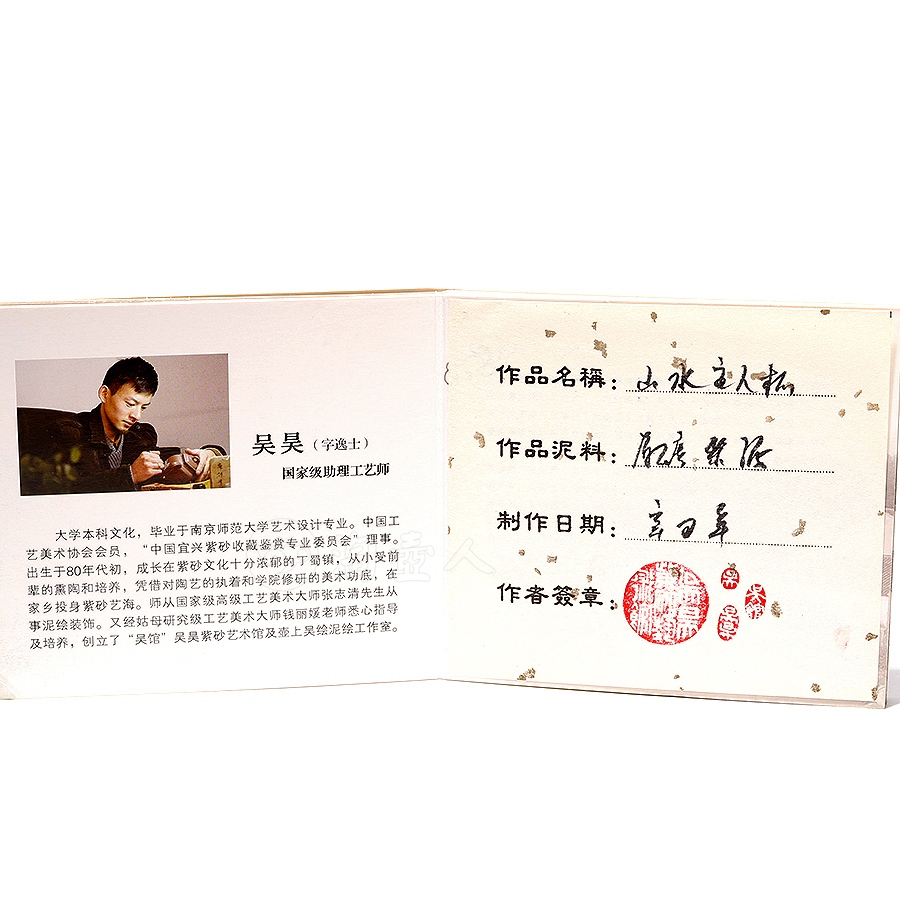 吴昊（字逸士）
国家级助理工艺师
大学本科文化，毕业于南京师范大学艺术设计专业。中国工
艺美术协会会员，“中国宜兴紫砂收藏鉴赏专业委员会”理事。
出生于80年代初，成长在紫砂文化十分浓郁的丁蜀镇，从小受前
辈的熏陶和培养，凭借对陶艺的执着和学院修研的美术功底，在
家乡投身紫砂艺海。师从国家级高级工艺美术大师张志清先生从
事泥绘装饰。又经姑母研究级工艺美术大师钱丽媛老师悉心指导
及培养，创立了“吴馆”吴昊紫砂艺术馆及壶上吴绘泥绘工作室。
壶人
作品名稱：山水主人杯
作品泥料：
制作日期：
作者簽章：